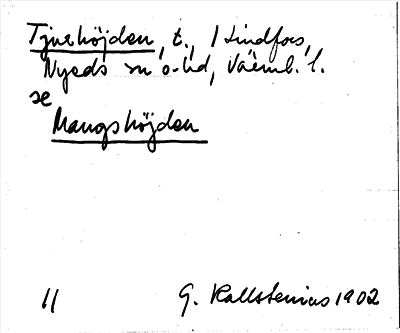 Tjurhöjden, t., 1 Lindfors,
Nyeds sn o-hd, Värml. l.
se
Mangshöjden
11 G. Kallstenius 1902